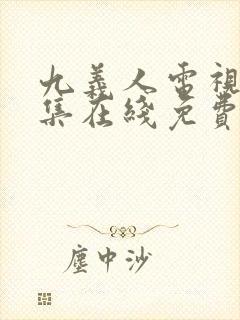 九義人電視
集在綫免費
塵中沙